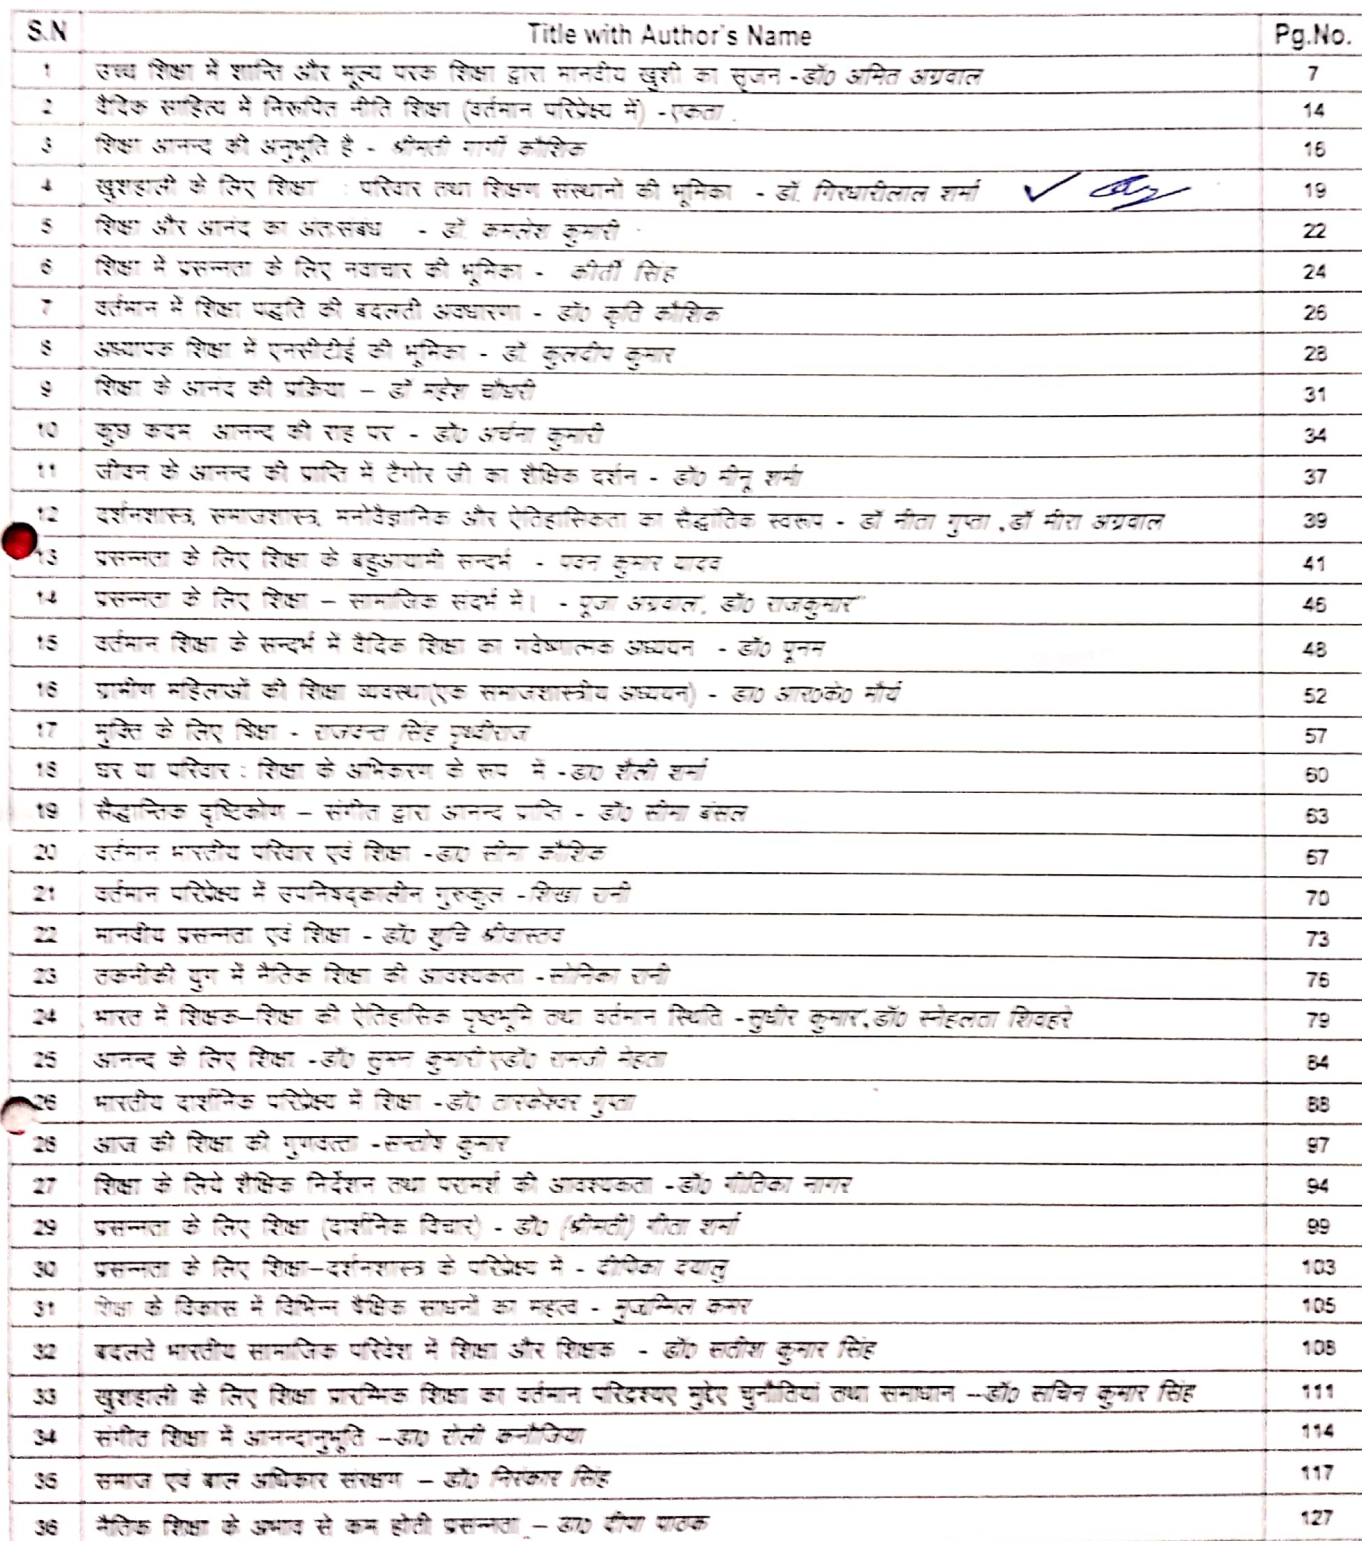 S.N Title with Author's Name Pg.No.
1 उच्च शिक्षा में शान्ति और मूल्य परक शिक्षा द्वारा मानवीय खुशी का सृजन -डॉ0 अमित अग्रवाल 7
2 वैदिक साहित्य में निरूपित नीति शिक्षा (वर्तमान परिप्रेक्ष्य में) -एकता . 14
3 शिक्षा आनन्द की अनुभूति है - श्रीमती गार्गी कौशिक 16
4 खुशहाली के लिए शिक्षा : परिवार तथा शिक्षण संस्थानों की भूमिका - डॉ. गिरधारीलाल शर्मा ✓ 19
5 शिक्षा और आनंद का अंतःसंबंध - डॉ. कमलेश कुमारी 22
6 शिक्षा में प्रसन्नता के लिए नवाचार की भूमिका - कीर्ती सिंह 24
7 वर्तमान में शिक्षा पद्धति की बदलती अवधारणा - डॉ0 कृति कौशिक 26
8 अध्यापक शिक्षा में एनसीटीई की भूमिका - डॉ. कुलदीप कुमार 28
9 शिक्षा के आनद की प्रक्रिया – डॉ महेश चौधरी 31
10 कुछ कदम आनन्द की राह पर - डॉ0 अर्चना कुमारी 34
11 जीवन के आनन्द की प्राप्ति में टैगोर जी का शैक्षिक दर्शन - डॉ0 मीनू शर्मा 37
12 दर्शनशास्त्र, समाजशास्त्र, मनोवैज्ञानिक और ऐतिहासिकता का सैद्धांतिक स्वरूप - डॉ नीता गुप्ता ,डॉ मीरा अग्रवाल 39
13 प्रसन्नता के लिए शिक्षा के बहुआयामी सन्दर्भ - पवन कुमार यादव 41
14 प्रसन्नता के लिए शिक्षा – सामाजिक संदर्भ में। - पूजा अग्रवाल, डॉ0 राजकुमार 46
15 वर्तमान शिक्षा के सन्दर्भ में वैदिक शिक्षा का गवेष्णात्मक अध्ययन - डॉ0 पूनम 48
16 ग्रामीण महिलाओं की शिक्षा व्यवस्था(एक समाजशास्त्रीय अध्ययन) - डा0 आर0के0 मौर्य 52
17 मुक्ति के लिए षिक्षा - राजवन्त सिंह पृथ्वीराज 57
18 घर या परिवार : शिक्षा के अभिकरण के रूप में -डा0 शैली शर्मा 60
19 सैद्धान्तिक दृष्टिकोण – संगीत द्वारा आनन्द प्राप्ति - डॉ0 सीमा बंसल 63
20 वर्तमान भारतीय परिवार एवं शिक्षा -डा0 सीमा कौशिक 67
21 वर्तमान परिप्रेक्ष्य में उपनिषद्कालीन गुरुकुल -शिखा रानी 70
22 मानवीय प्रसन्नता एवं शिक्षा - डॉ0 शुचि श्रीवास्तव 73
23 तकनीकी युग में नैतिक शिक्षा की आवश्यकता -सोनिका रानी 76
24 भारत में शिक्षक–शिक्षा की ऐतिहासिक पृष्ठभूमि तथा वर्तमान स्थिति -सुधीर कुमार,डॉ0 स्नेहलता शिवहरे 79
25 आनन्द के लिए शिक्षा -डॉ0 सुमन कुमारीएडॉ0 रामजी मेहता 84
26 भारतीय दार्शनिक परिप्रेक्ष्य में शिक्षा -डॉ0 तारकेश्वर गुप्ता 88
28 आज की शिक्षा की गुणवत्ता -सन्तोष कुमार 97
27 शिक्षा के लिये शैक्षिक निर्देशन तथा परामर्श की आवश्यकता -डॉ0 गीतिका नागर 94
29 प्रसन्नता के लिए शिक्षा (दार्शनिक विचार) - डॉ0 (श्रीमती) गीता शर्मा 99
30 प्रसन्नता के लिए शिक्षा–दर्शनशास्त्र के परिप्रेक्ष्य में - दीपिका दयालु 103
31 के विकास में विभिन्न साधनों का महत्व - मुजम्मिल कमर 105
32 बदलते भारतीय सामाजिक परिवेश में शिक्षा और शिक्षक - डॉ0 सतीश कुमार सिंह 108
33 खुशहाली के लिए शिक्षा प्रारम्भिक शिक्षा का वर्तमान परिद्रश्यए मुद्देए चुनौतियां तथा समाधान –डॉ0 सचिन कुमार सिंह 111
34 संगीत शिक्षा में आनन्दानुभूति –डा0 रोली कनौजिया 114
35 समाज एवं बाल अधिकार संरक्षण – डॉ0 निरंकार सिंह 117
36 नैतिक शिक्षा के अभाव से कम होती प्रसन्नता – डा0 दीपा पाठक 127